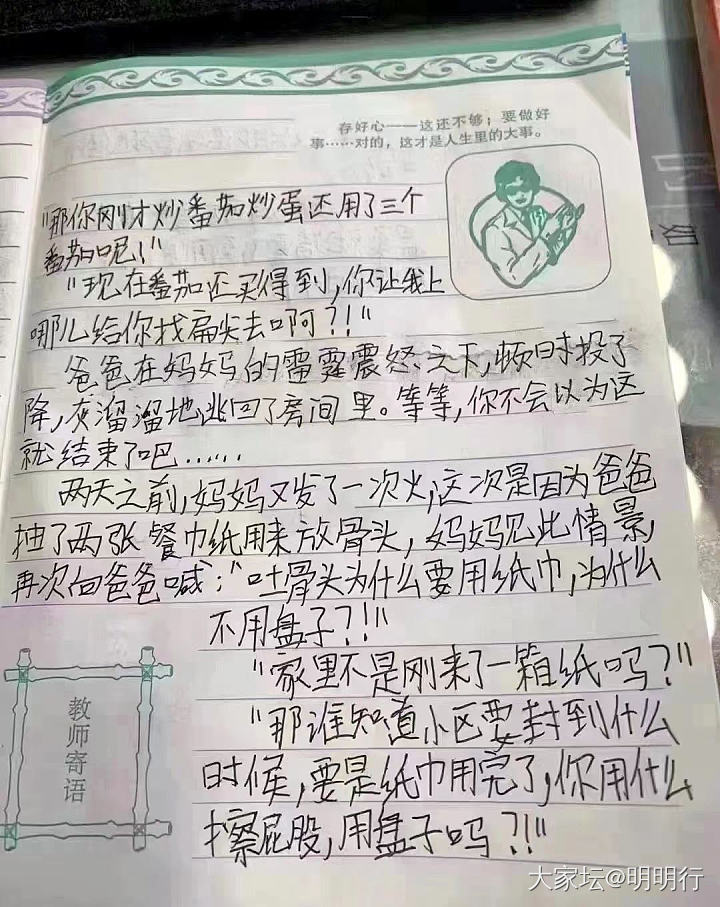 存好心——这还不够；要做好
事……对的，这才是人生里的大事。
"那你刚才炒番茄炒蛋还用了三个
番茄呢！"
"现在番茄还买得到，你让我上
哪儿给你找扁尖去啊？！"
爸爸在妈妈的雷霆震怒之下，顿时投了
降，灰溜溜地逃回了房间里。等等，你不会以为这
就结束了吧……
两天之前，妈妈又发了一次火，这次是因为爸爸
抽了两张餐巾纸用来放骨头，妈妈见此情景，
再次向爸爸喊："吐骨头为什么要用纸巾，为什么
不用盘子？！"
"家里不是刚来了一箱纸吗？"
"那谁知道小区要封到什么
时候，要是纸巾用完了，你用什么
擦屁股，用盘子吗？！"
教师寄语
大家坛@明明行